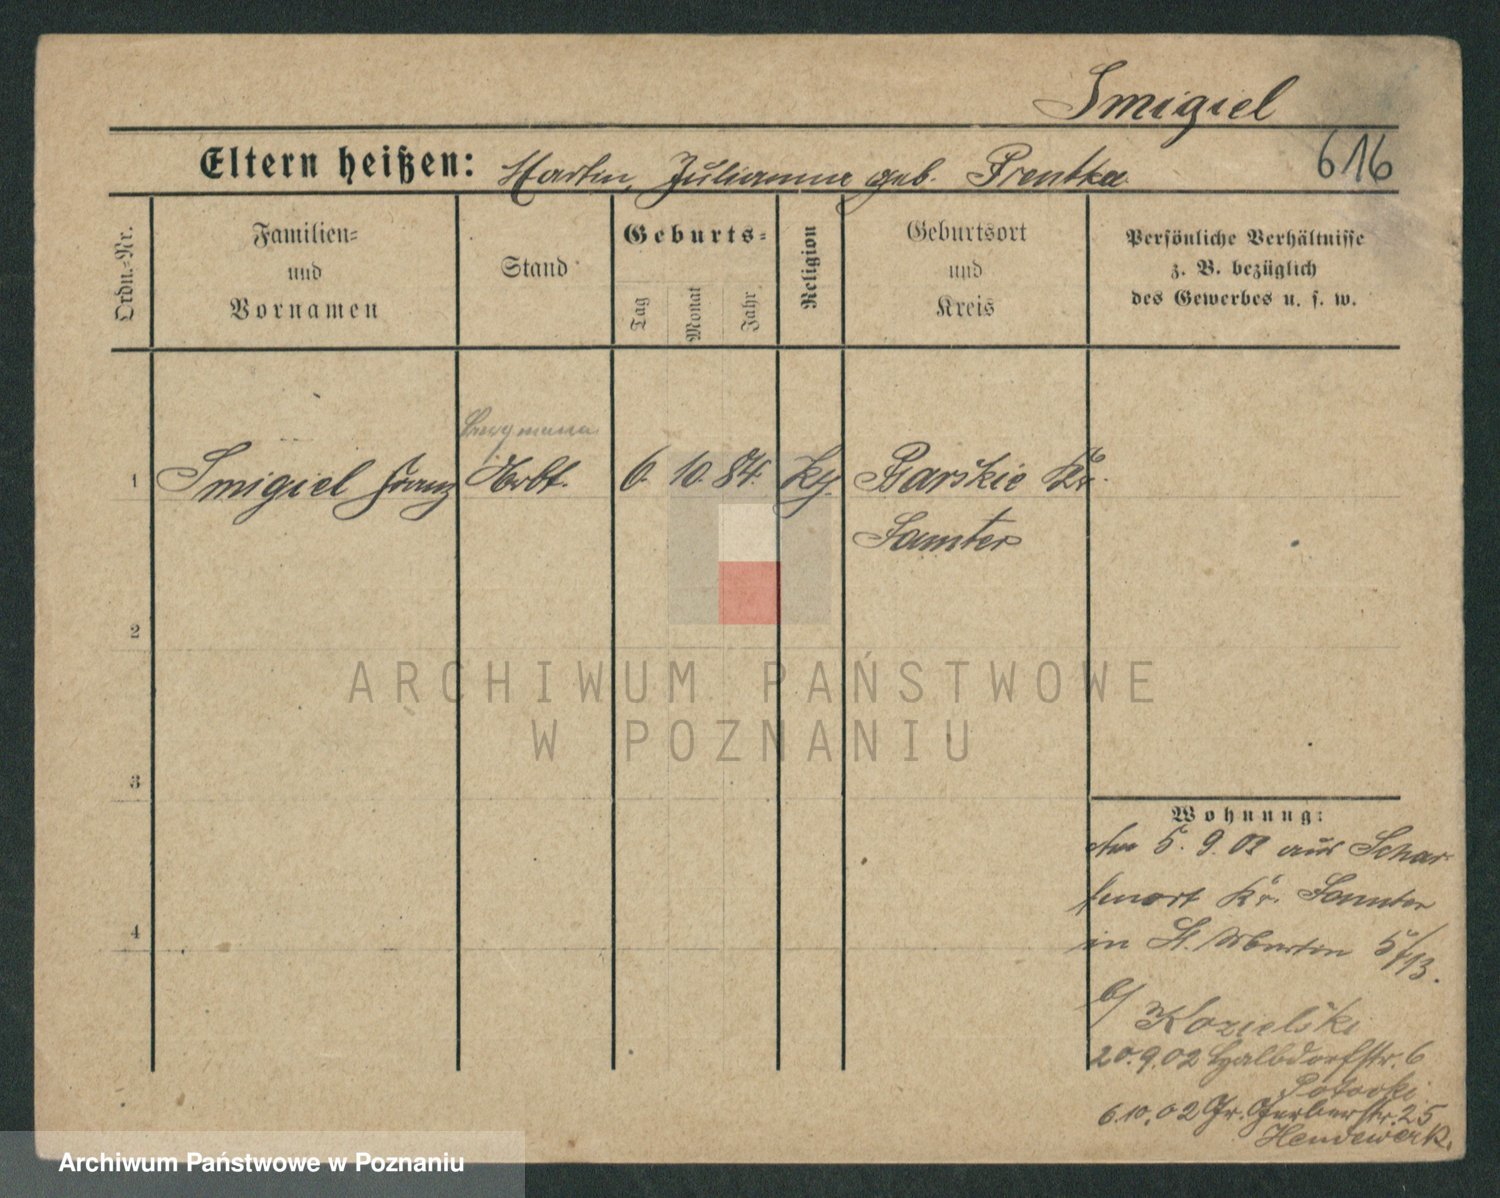 Smigiel
616
Eltern heißen: Martin, Julianna geb. Prentka
Ordn.-Nr.
Familien-
und
Vornamen
Stand
Geburts-
Tag
Monat
Jahr
Religion
Geburtsort
und
Kreis
Persönliche Verhältnisse
z. B. bezüglich
des Gewerbes u. s. w.
1 Smigiel Franz Arbt. 6. 10. 84. Piarskie Kr.
Samter
2
3
4
Wohnung:
Am 5. 9. 02 aus Schar-
fenort Kr. Samter
in St. Martin 5/13.
b/
Kozielski
20.9.02 Halbdorfstr. 6
Potocki
6.10.02 Gr. Gerberstr. 25
Hendewerk.
ARCHIWUM PAŃSTWOWE
W POZNANIU
Archiwum Państwowe w Poznaniu